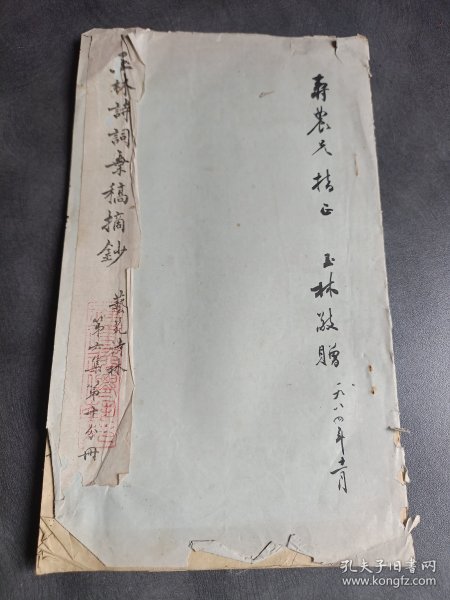 寿農兄指正
玉林敬贈
一九八四年十一月
玉林詩詞叢稿摘鈔
藝苑吉林
第七集第十分冊
孔夫子旧书网
www.kongfz.com